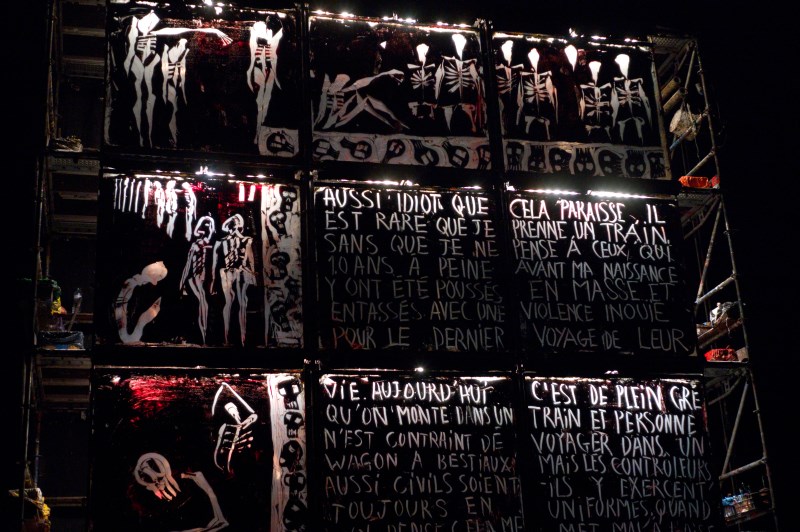 AUSSI IDIOT QUE CELA PARAISSE, IL
EST RARE QUE JE PRENNE UN TRAIN
SANS QUE JE NE PENSE À CEUX QUI
10 ANS À PEINE AVANT MA NAISSANCE
Y ONT ÉTÉ POUSSÉS EN MASSE ET
ENTASSÉS AVEC UNE VIOLENCE INOUIE
POUR LE DERNIER VOYAGE DE LEUR
VIE. AUJOURD'HUI C'EST DE PLEIN GRE
QU'ON MONTE DANS UN TRAIN ET PERSONNE
N'EST CONTRAINT DE VOYAGER DANS UN
WAGON À BESTIAUX MAIS LES CONTRÔLEURS
AUSSI CIVILS SOIENT -ILS Y EXERCENT
TOUJOURS EN UNIFORMES. QUAND
PENSE CELA ME